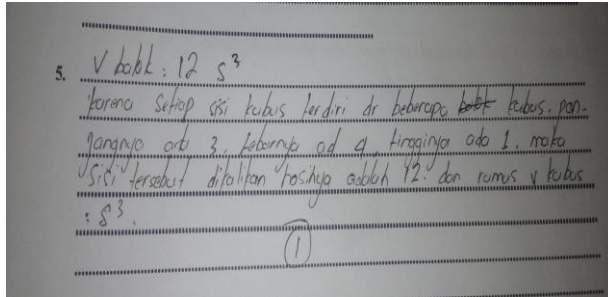 5. V balok : 12 s³
karena setiap sisi kubus terdiri dr beberapa balok kubus. pan-
jangnya ada 3. lebarnya ad 4. tingginya ada 1. maka
sisi tersebut dikalikan hasilnya adalah 12. dan rumus v kubus
: s³.
1